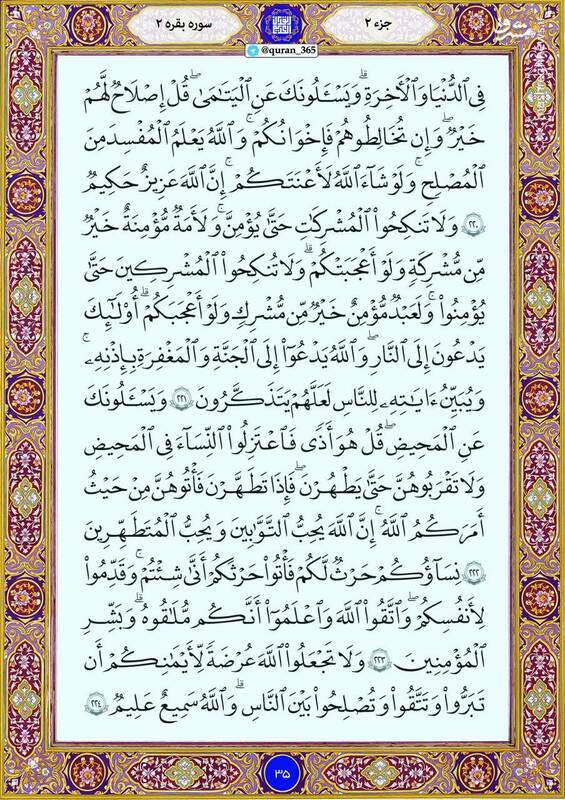 جزء ۲
سوره بقره ۲
@quran_365
مشرق
فِى ٱلدُّنْيَا وَٱلْـَٔاخِرَةِ ۗ وَيَسْـَٔلُونَكَ عَنِ ٱلْيَتَـٰمَىٰ ۖ قُلْ إِصْلَاحٌ لَّهُمْ
خَيْرٌ ۖ وَإِن تُخَالِطُوهُمْ فَإِخْوَٰنُكُمْ ۚ وَٱللَّهُ يَعْلَمُ ٱلْمُفْسِدَ مِنَ
ٱلْمُصْلِحِ ۚ وَلَوْ شَآءَ ٱللَّهُ لَأَعْنَتَكُمْ ۚ إِنَّ ٱللَّهَ عَزِيزٌ حَكِيمٌ
۲۲۰ وَلَا تَنكِحُوا۟ ٱلْمُشْرِكَـٰتِ حَتَّىٰ يُؤْمِنَّ ۚ وَلَأَمَةٌ مُّؤْمِنَةٌ خَيْرٌ
مِّن مُّشْرِكَةٍ وَلَوْ أَعْجَبَتْكُمْ ۗ وَلَا تُنكِحُوا۟ ٱلْمُشْرِكِينَ حَتَّىٰ
يُؤْمِنُوا۟ ۚ وَلَعَبْدٌ مُّؤْمِنٌ خَيْرٌ مِّن مُّشْرِكٍ وَلَوْ أَعْجَبَكُمْ ۗ أُو۟لَـٰٓئِكَ
يَدْعُونَ إِلَى ٱلنَّارِ ۖ وَٱللَّهُ يَدْعُوٓا۟ إِلَى ٱلْجَنَّةِ وَٱلْمَغْفِرَةِ بِإِذْنِهِۦ ۖ
وَيُبَيِّنُ ءَايَـٰتِهِۦ لِلنَّاسِ لَعَلَّهُمْ يَتَذَكَّرُونَ ۲۲۱ وَيَسْـَٔلُونَكَ
عَنِ ٱلْمَحِيضِ ۖ قُلْ هُوَ أَذًى فَٱعْتَزِلُوا۟ ٱلنِّسَآءَ فِى ٱلْمَحِيضِ
وَلَا تَقْرَبُوهُنَّ حَتَّىٰ يَطْهُرْنَ ۖ فَإِذَا تَطَهَّرْنَ فَأْتُوهُنَّ مِنْ حَيْثُ
أَمَرَكُمُ ٱللَّهُ ۚ إِنَّ ٱللَّهَ يُحِبُّ ٱلتَّوَّٰبِينَ وَيُحِبُّ ٱلْمُتَطَهِّرِينَ
۲۲۲ نِسَآؤُكُمْ حَرْثٌ لَّكُمْ فَأْتُوا۟ حَرْثَكُمْ أَنَّىٰ شِئْتُمْ ۖ وَقَدِّمُوا۟
لِأَنفُسِكُمْ ۚ وَٱتَّقُوا۟ ٱللَّهَ وَٱعْلَمُوٓا۟ أَنَّكُم مُّلَـٰقُوهُ ۗ وَبَشِّرِ
ٱلْمُؤْمِنِينَ ۲۲۳ وَلَا تَجْعَلُوا۟ ٱللَّهَ عُرْضَةً لِّأَيْمَـٰنِكُمْ أَن
تَبَرُّوا۟ وَتَتَّقُوا۟ وَتُصْلِحُوا۟ بَيْنَ ٱلنَّاسِ ۗ وَٱللَّهُ سَمِيعٌ عَلِيمٌ ۲۲۴
۳۵